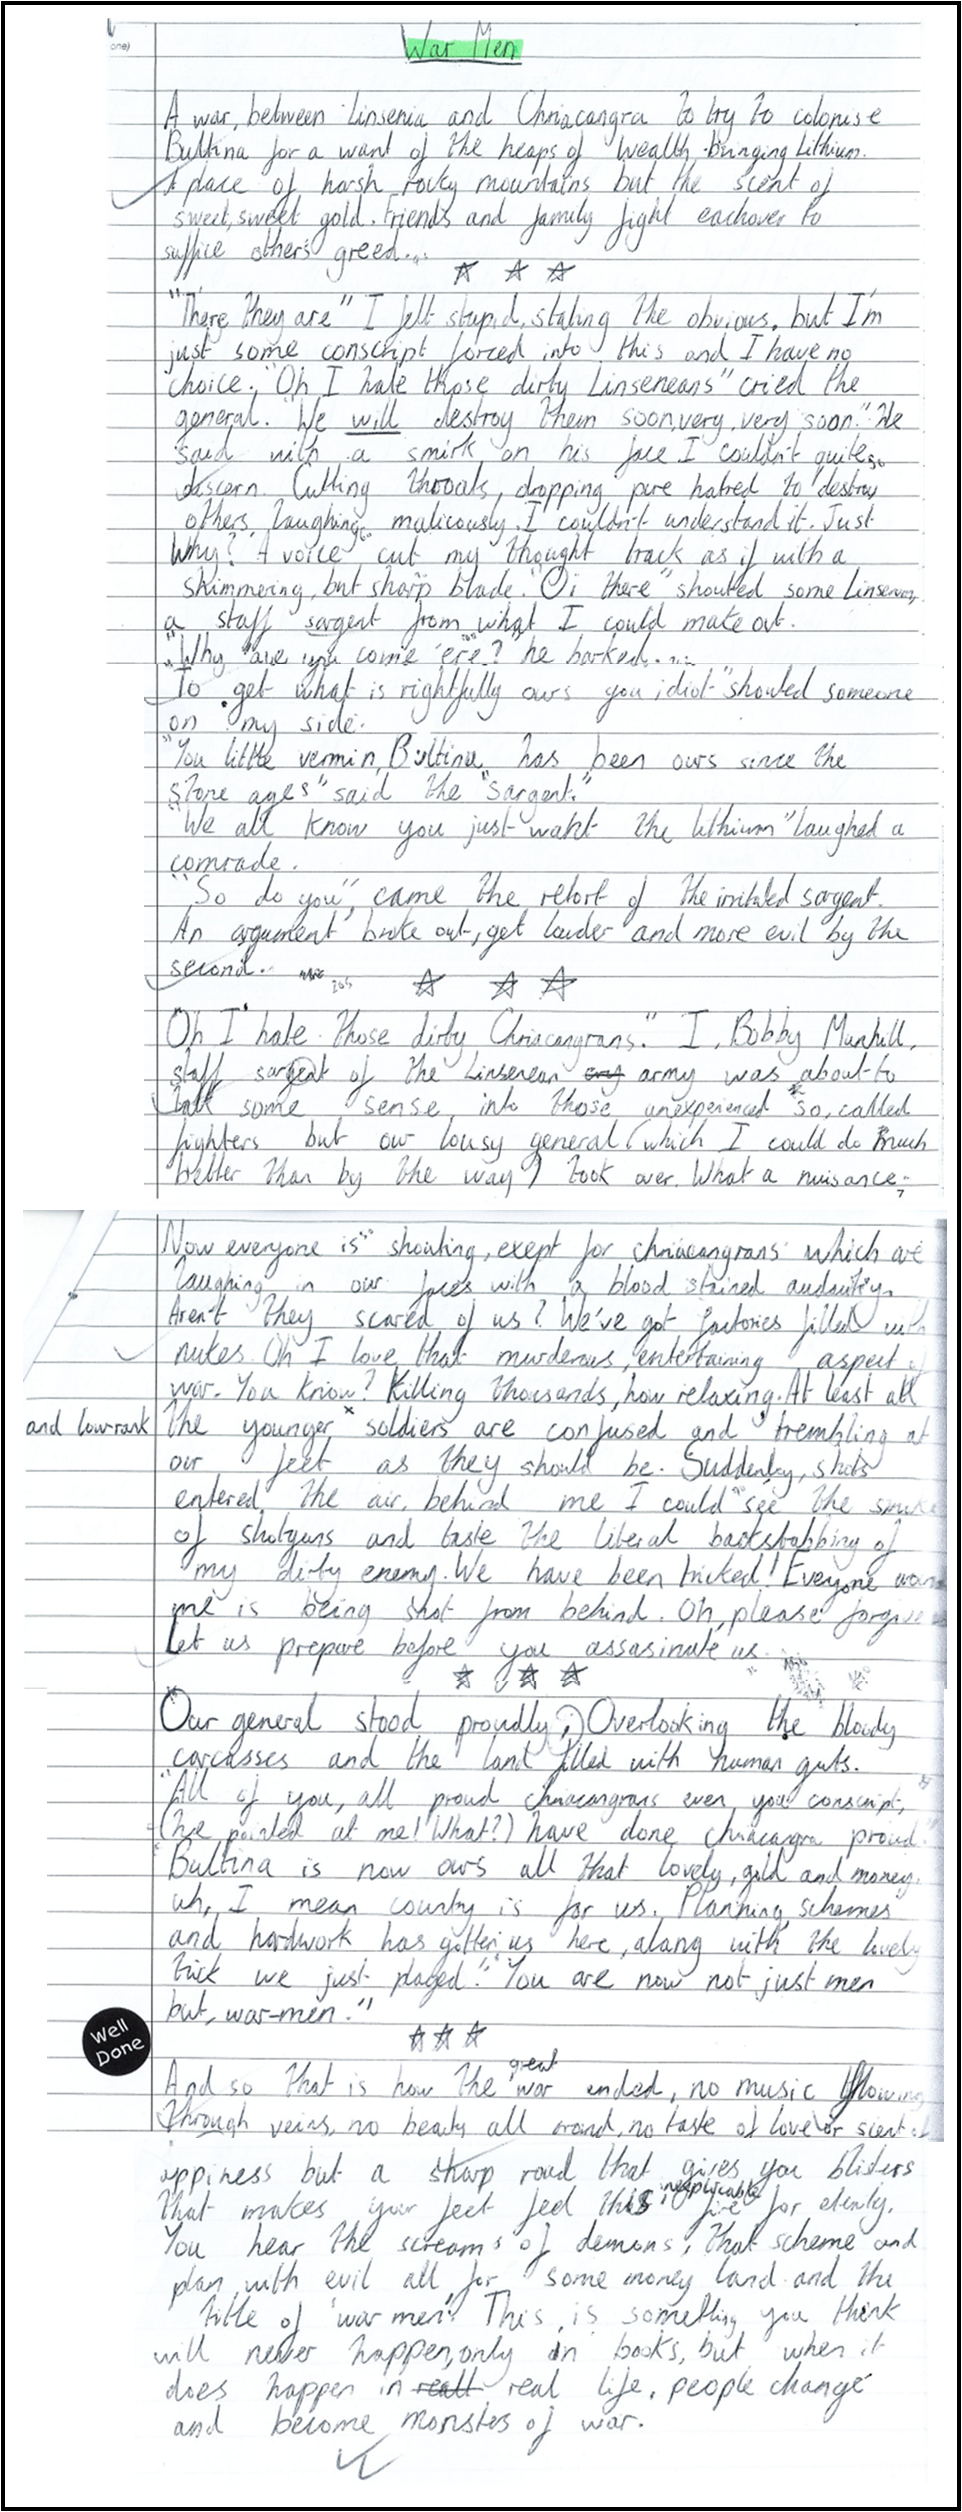 one)
War Men
A war, between Linsenia and Chriacangra to try to colonise
Bultina for a want of the heaps of wealth-bringing Lithium.
A place of harsh rocky mountains but the scent of
sweet, sweet gold. Friends and family fight eachover to
suffice others greed...
"There they are" I felt stupid, stating the obvious, but I'm
just some conscript forced into this and I have no
choice. "Oh I hate those dirty Linseneans" cried the
general. "We will destroy them soon, very, very soon." He
said with a smirk on his face I couldn't quite
discern. Cutting throats, dropping pure hatred to destroy
others, laughing malicously. I couldn't understand it. Just
Why? A voice cut my thought track as if with a
skimmering, but sharp blade. "Oi there" shouted some
a staff sargent from what I could make out.
"Why 'ave you come 'ere? he barked...
To get what is rightfully ours you idiot" shouted someone
on my side.
"You little vermin, Bultina has been ours since the
stone ages" said the "sargent."
"We all know you just want the lithium" laughed a
comrade.
"So do you", came the retort of the irritated sargent.
An argument broke out, get louder and more evil by the
second.
Oh I hate those dirty Chriacangrans." I, Bobby Munhill,
staff sargent of the Linsenean army was about to
talk some sense into those unexperienced so, called
fighters but our lousy general (which I could do much
better than by the way) took over. What a nuisance.
Now everyone is shouting, exept for chriacangrans which are
laughing in our faces with a blood stained audacity.
Aren't they scared of us? We've got factories filled with
nukes. Oh I love that murderous, entertaining aspect of
war. You know? Killing thousands, how relaxing. At least all
and low rank
the younger soldiers are confused and trembling at
our feet as they should be. Suddenley, shots
entered the air, behind me I could see the smoke
of shotguns and taste the literal backstabbing of
my dirty enemy. We have been tricked! Everyone
me is being shot from behind. Oh, please forgive
Let us prepare before you assasinate us.
Our general stood proudly; Overlooking the bloody
carcasses and the land filled with human guts.
"All of you, all proud chriacangrans even you conscript,
(he pointed at me! What?) have done chriacangra proud."
"Bultina is now ours all that lovely, gold and money.
uh, I mean country is for us. Planning, schemes
and hardwork has gotten us here, along with the lovely
trick we just played." "You are now not just men
but, war-men."
Well
Done
great
And so that is how the war ended, no music flowing
through veins, no beauty all around, no taste of love or scent of
appiness but a sharp road that gives you blisters
inexplicable
that makes your feet feel this fire for eternity.
You hear the screams of demons, that scheme and
plan with evil all for some money land and the
title of 'war men'. This is something you think
will never happen, only in books, but when it
does happen in reall real life, people change
and become monsters of war.